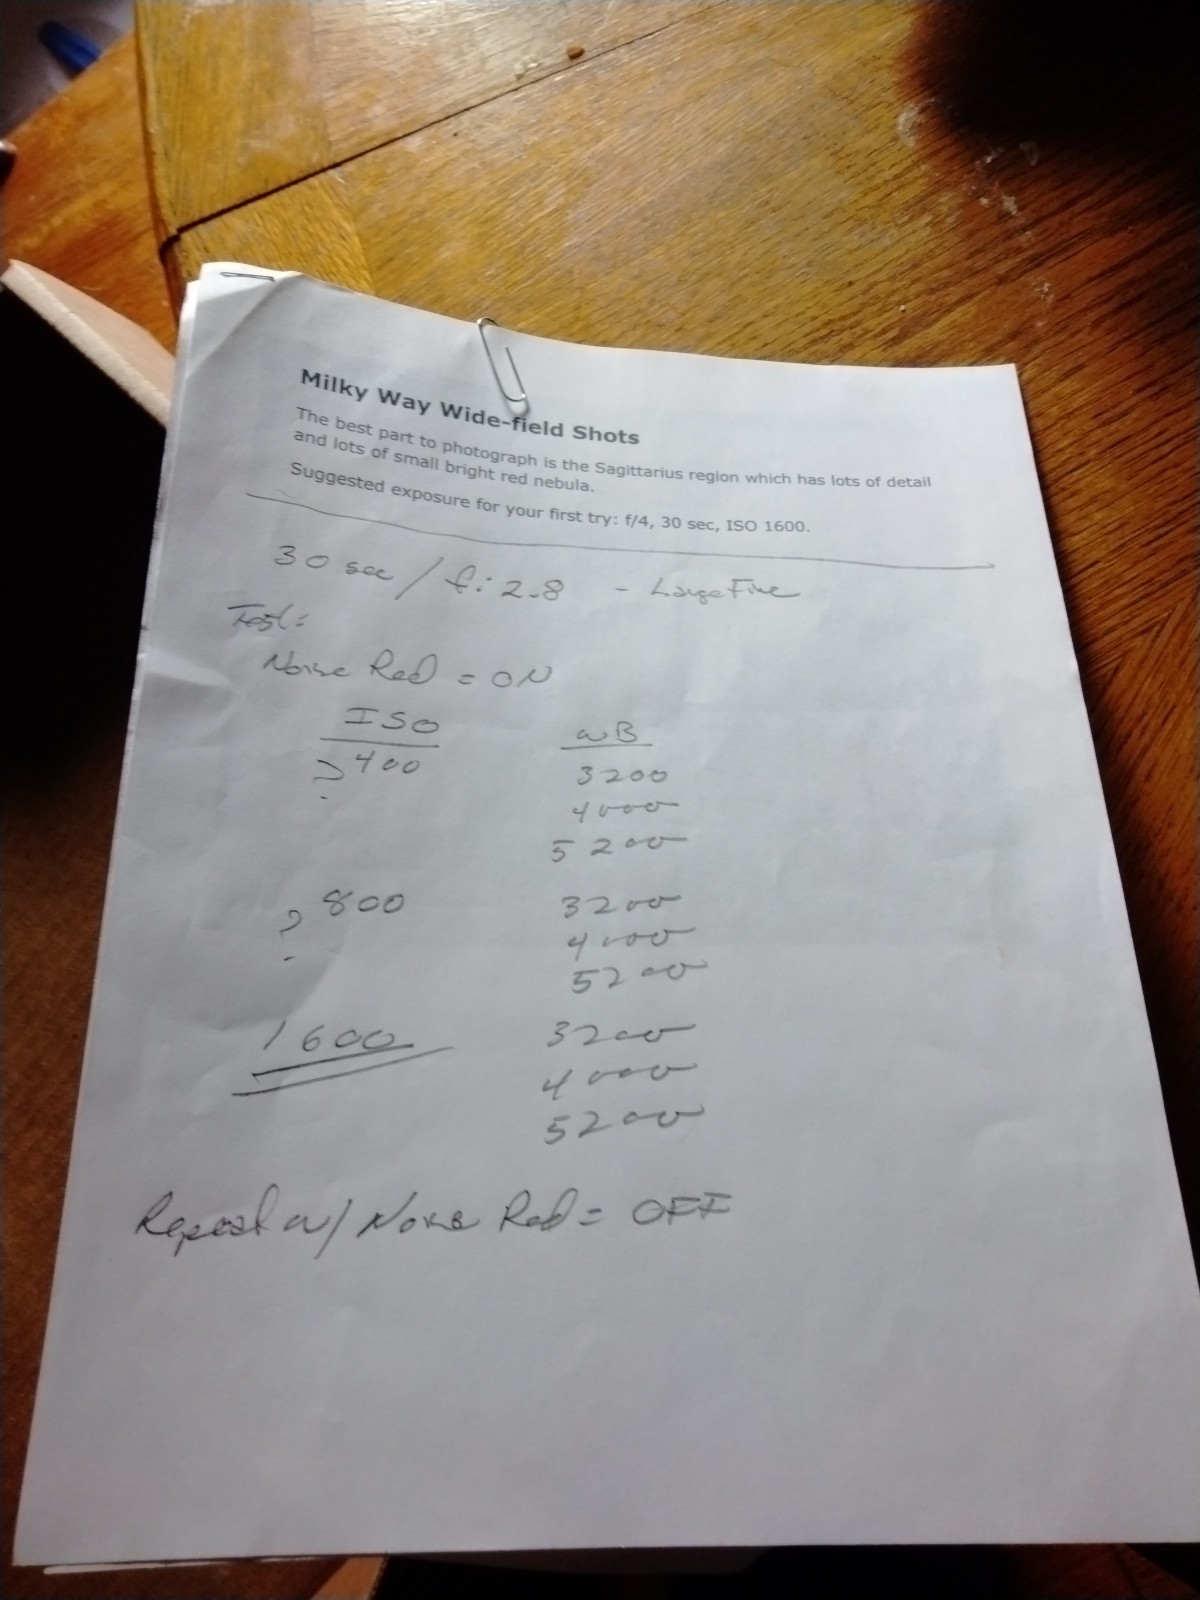 Milky Way Wide-field Shots
The best part to photograph is the Sagittarius region which has lots of detail
and lots of small bright red nebula.
Suggested exposure for your first try: f/4, 30 sec, ISO 1600.
30 sec / f: 2.8 - Large Fine
Test:
Noise Red = ON
ISO WB
? 400 3200
4000
5200
? 800 3200
4000
5200
1600 3200
4000
5200
Repeat w/ Noise Red = OFF